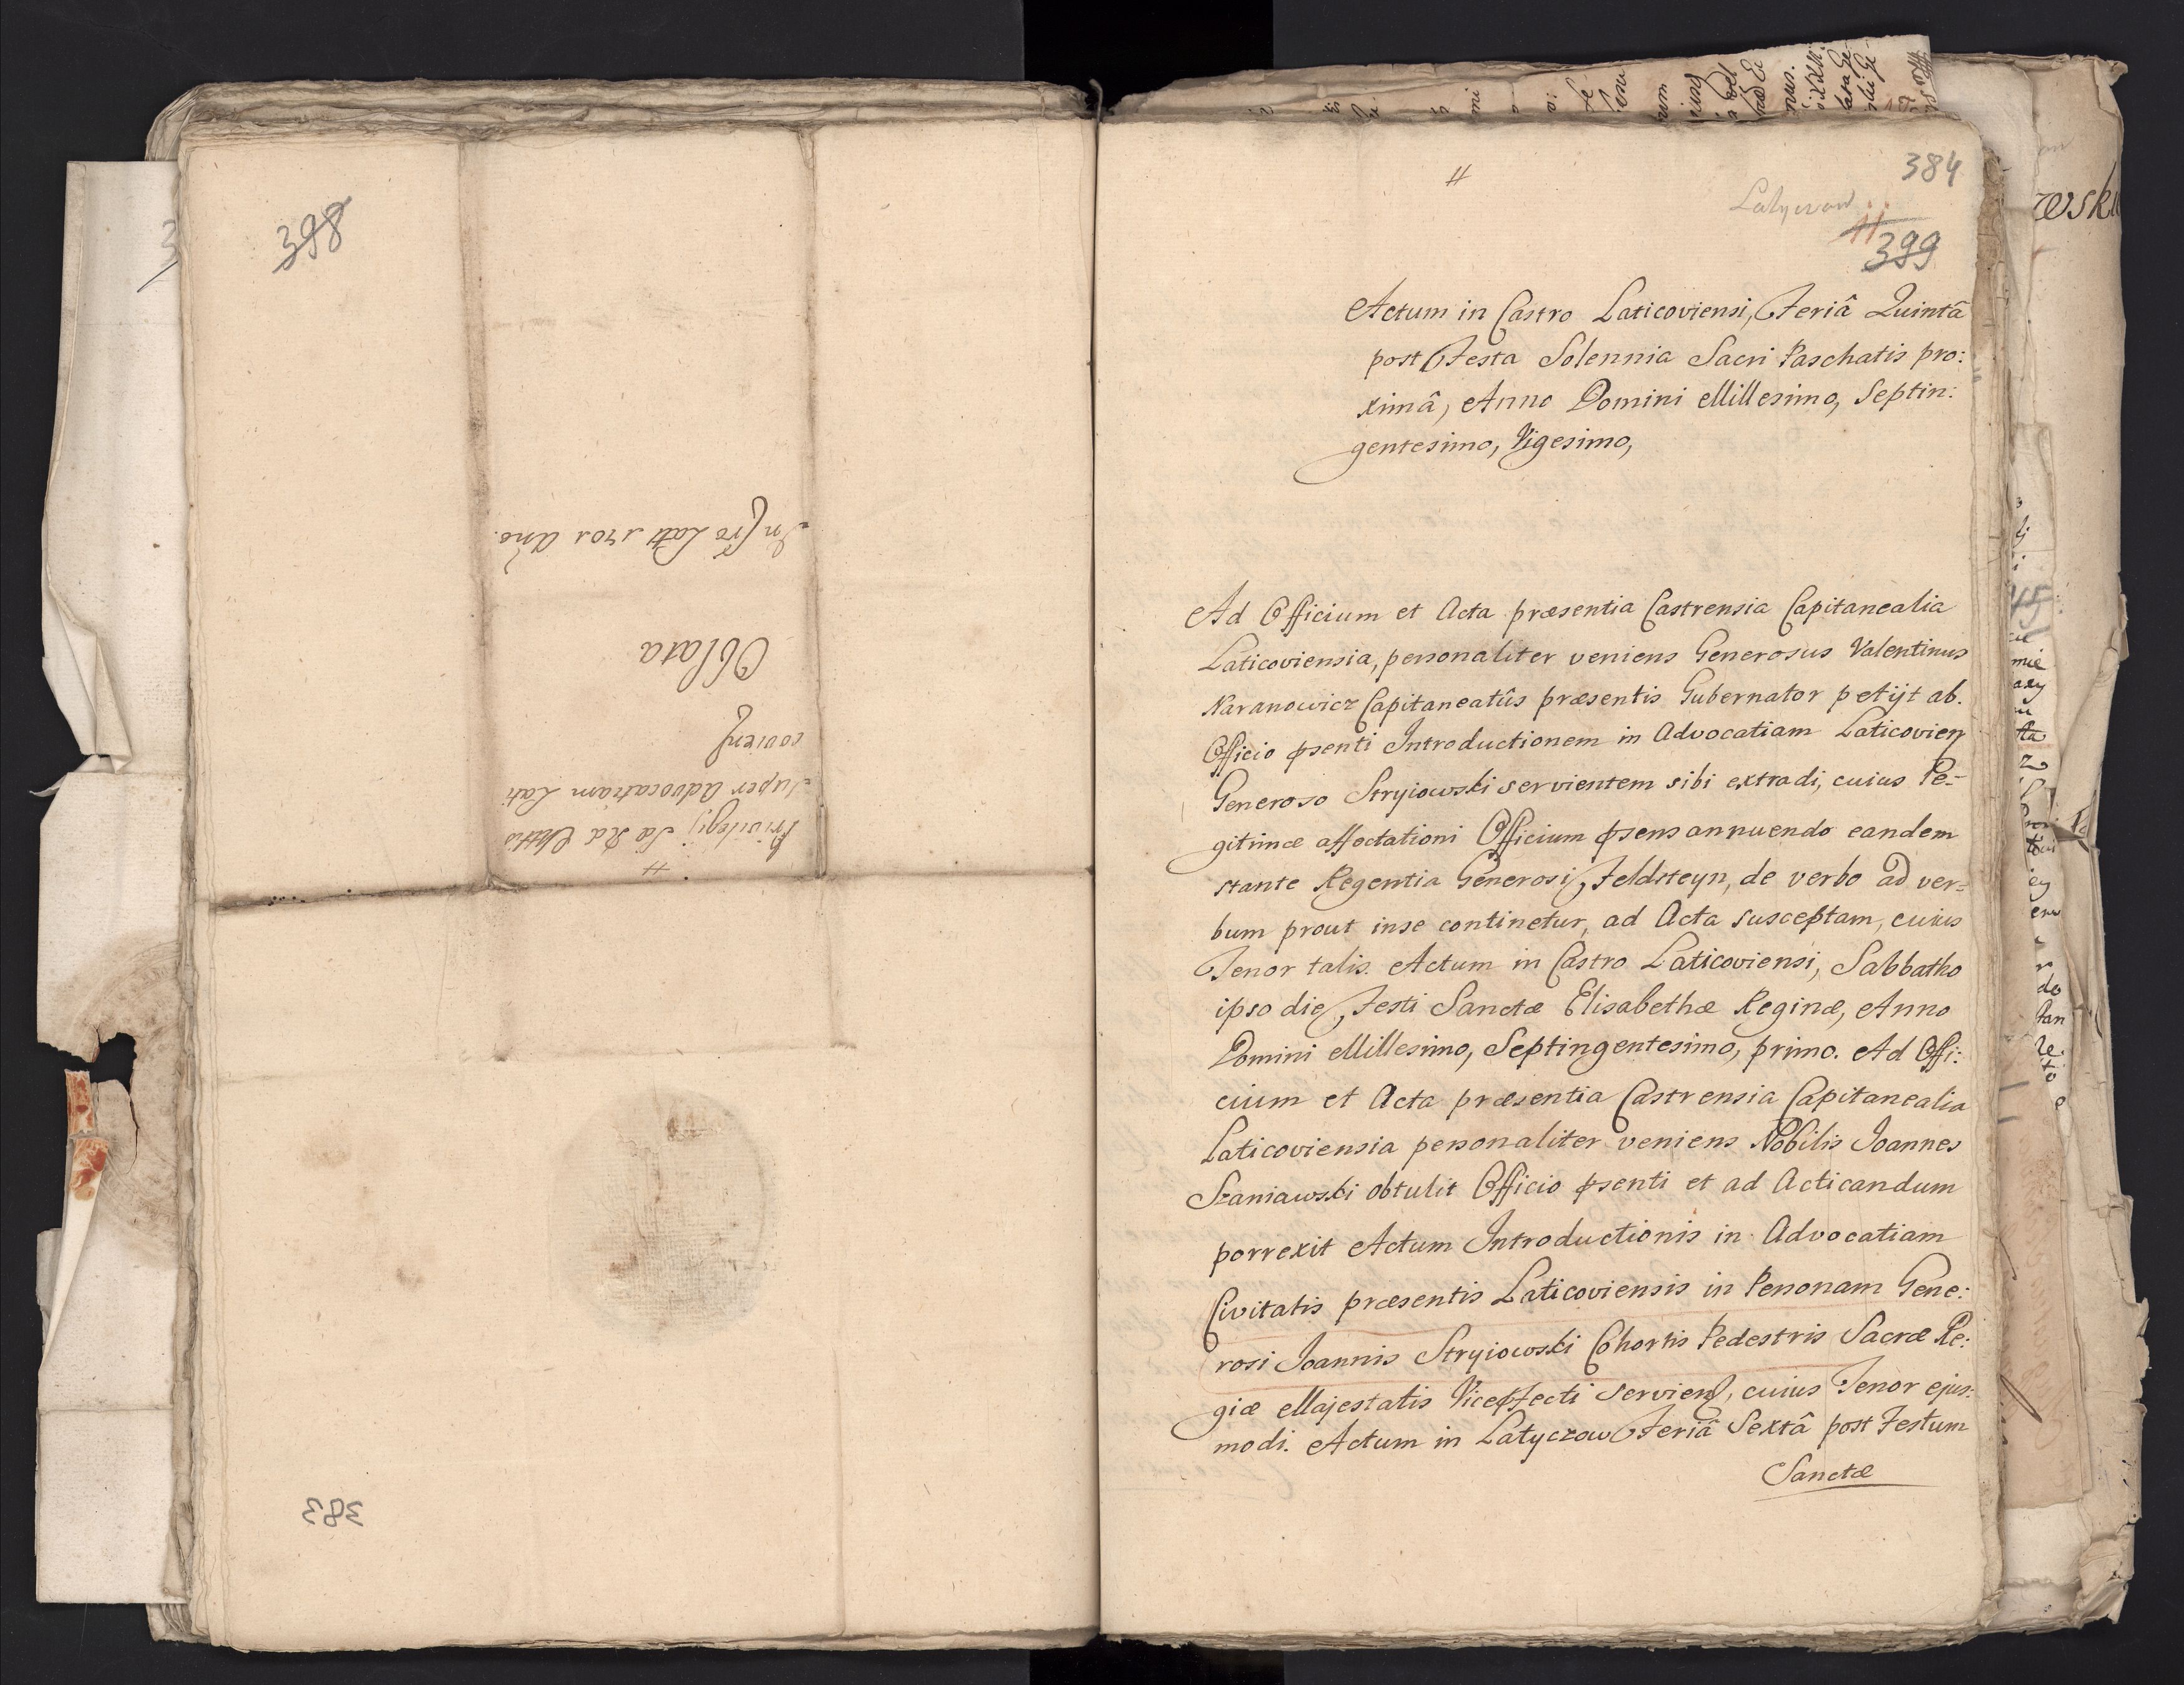 398
#
Privilegij Sæ Ræ Mattis
super Advocatiam Lati
coviens
Oblata
In Cro Lati 1701 Anō.
383
#
384
Latyczow
11
399
Actum in Castro Laticoviensi, Feriâ Quintâ
post Festa Solennia Sacri Paschatis pro:
ximâ, Anno Domini Millesimo, Septin:
gentesimo, Vigesimo,
Ad Officium et Acta præsentia Castrensia Capitanealia
Laticoviensia, personaliter veniens Generosus Valentinus
Naranowicz Capitaneatûs præsentis Gubernator petijt ab.
Officio psenti Introductionem in Advocatiam Laticovien
Generoso Stryiowski servientem sibi extradi, cuius Le-
gitimæ affectationi Officium psens annuendo eandem
stante Regentia Generosi, Feldsteyn, de verbo ad ver=
bum prout inse continetur, ad Acta susceptam, cuius
Tenor talis. Actum in Castro Laticoviensi, Sabbatho
ipso die, Festi Sanctæ Elisabethæ Reginæ, Anno
Domini Millesimo, Septingentesimo, primo. Ad Offi:
cium et Acta præsentia Castrensia Capitanealia
Laticoviensia personaliter veniens Nobilis Joannes
Szaniawski obtulit Officio psenti et ad Acticandum
porrexit Actum Introductionis in Advocatiam
Civitatis præsentis Laticoviensis in Personam Gene:
rosi Joannis Stryiowski Cohortis Pedestris Sacræ Re:
giæ Majestatis Vicepfecti serviens, cuius Tenor ejus:
modi. Actum in Latyczow Feriâ Sextâ post Festum
Sanctæ